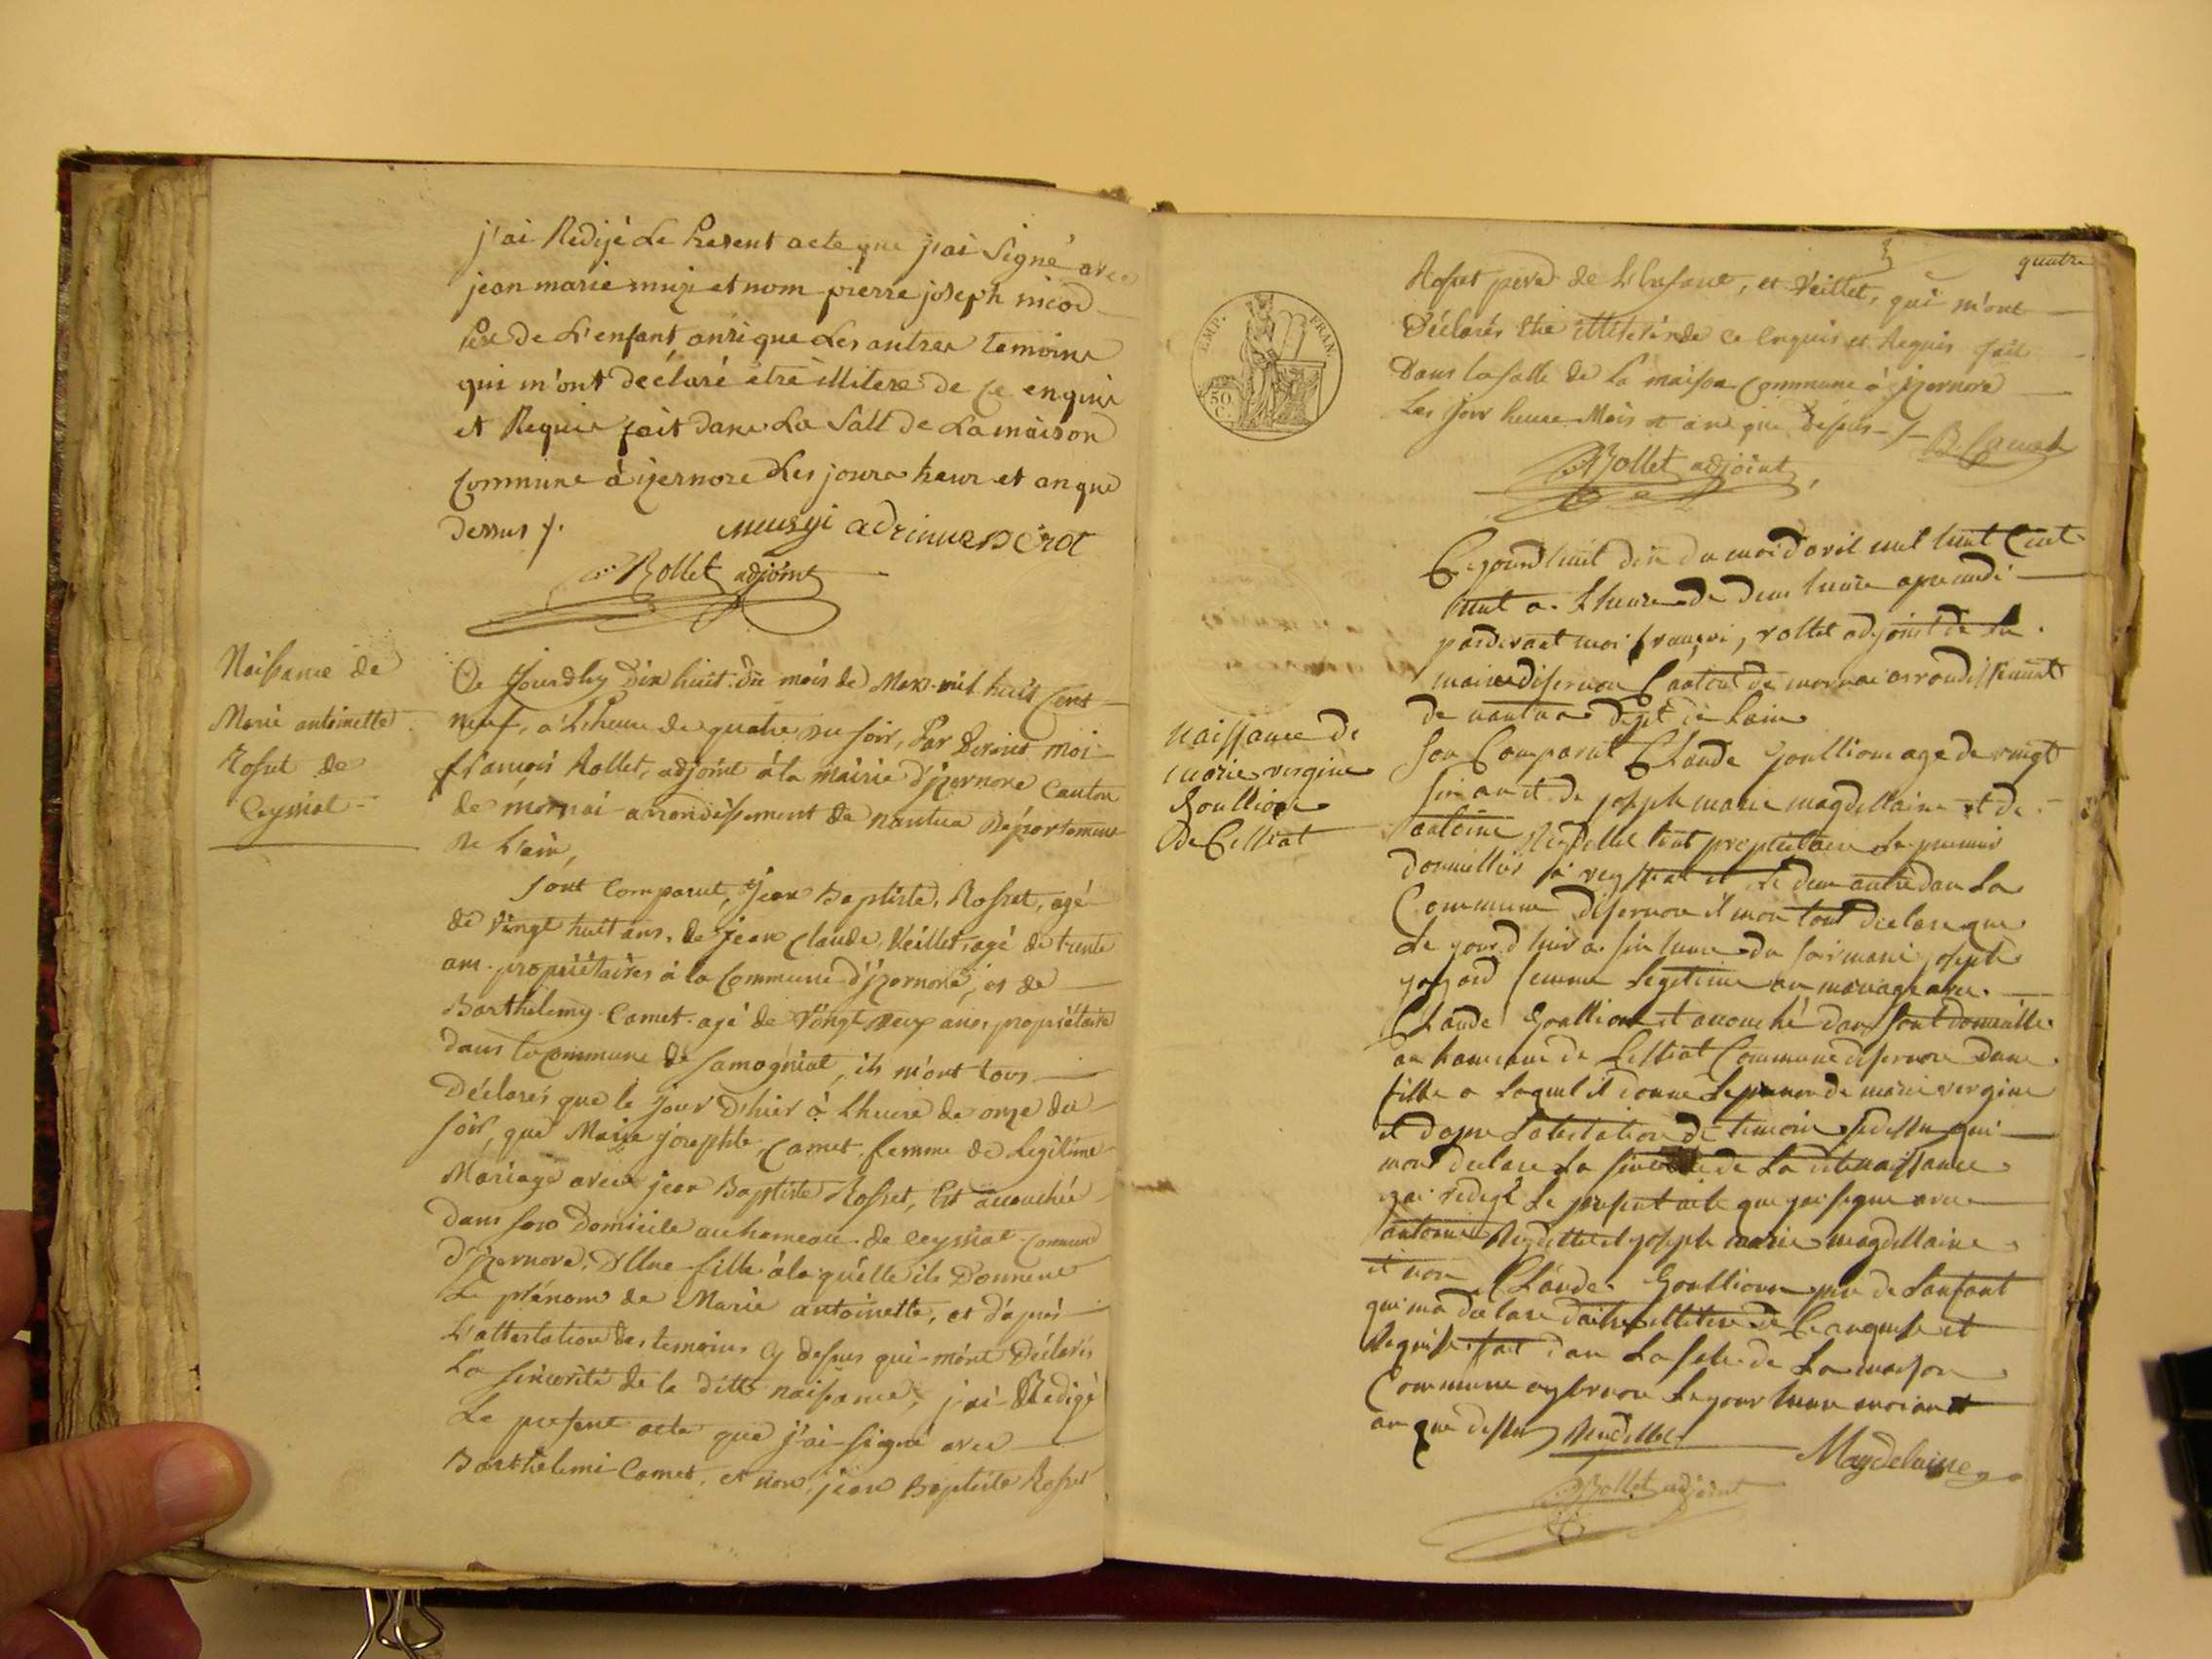 j'ai Redijé Le Present acte que j'ai Signé avec
jean marie mugi et nom pierre joseph nicod
Pere de L'enfant ansi que Les autres temoins
qui m'ont déclaré être illitere de ce enquis
et Requis fait dans La Sall de La maison
Commune à izernore Les jours heur et an que
dessus /.
Rollet adjoint
Naissance de
Marie antoinette
Rosset de
Ceyssiat
Ce Jourdhuy Dix huit du mois de Mars mil huit Cent
neuf, à L'heure de quatre du soir, Par Devant moi
françois Rollet, adjoint à la mairie d'Izernore Canton
de mornai arrondissement de nantua Département
de L'ain,
Sont Comparut, Jean Baptiste Rosset, agé
de vingt huit ans, de jean Claude Veillet, agé de trente
ans propriétaires à la Commune d'Izernore, et de
Barthélemy Camet agé de Vingt deux ans, propriétaire
dans la Commune de Samogniat, ils m'ont tous
Déclarés que le jour D'hier à L'heure de onze du
soir, que Marie josephte Camet femme de Légitime
Mariage avec jean Baptiste Rosset, Est accouchée
dans son Domicile au hameau de ceyssiat Commune
d'Izernore, D'Une fille à la quélle ils Donnent
Le prénom de Marie antoinette, et d'après
L'attestation des temoins Cy dessus qui m'ont Déclarés
La Sincérité de la ditte naissance, j'ai Redigé
Le present acte que j'ai signé avec
Barthelemi Camet, et non jean Baptiste Rosset
quatre
EMP. FRAN.
50
C.
Rosset pere de L'Enfant, et Veillet, qui m'ont
Déclarés être illiterés de ce Enquis et Requis fait
Dans la salle de la maison Commune à Izernore
Les jour heure Mois et an que Dessus
Rollet adjoint
naissance de
marie vergine
Goullion
de Cessiat
Ce jourd'huit dix du mois d'avril mil huit Cent
neuf a L'heure de deux heure apremidi
pardevant moi françoi, rollet adjoint de La
mairie disernore Canton de mornai arrondissement
de nantua dept de Lain
Son Comparut Claude Goullion age de vingt
sin an et de joseph marie magdellaine et de
antoine tout proprietaire Le premier
Commune disernore il mon tout declare que
Le jour d'hier a sin heure du soir marie joseph
femme Legetime en mariage avec
Claude Goullion et acouché dans sont domicille
au hameaux de Cessiat Commune disernore dune
fille a Laquel il donne Le prenon de marie vergine
et dapre Latestation de temoin sidessu qui
mont declare La sincerité de La dite naissance
jai redigé Le present acte que jai signe avec
antoine et joseph marie magdellaine
et non Claude Goullion pere de Lanfant
qui ma declare daitre illitere de Ce anquis et
Requis fait dan La sale de La maison
Commune Le jour heure moi et
an que dessu
Magdelaine
Rollet adjoint